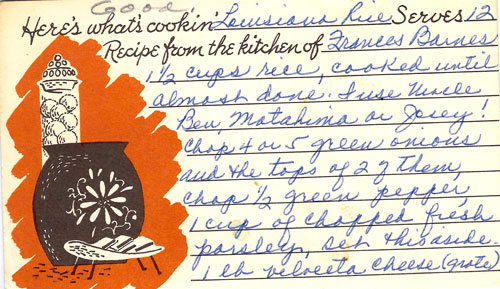 Good.
Here's what's cookin' Louisiana Rice Serves 12
Recipe from the kitchen of Frances Barnes
1 1/2 cups rice, cooked until
almost done. I use Uncle
Ben, Matahima or Josey!
Chop 4 or 5 green onions
and the tops of 2 of them,
chop 1/2 green pepper,
1 cup of chopped fresh
parsley, set this aside.
1 lb velveeta cheese (grate)